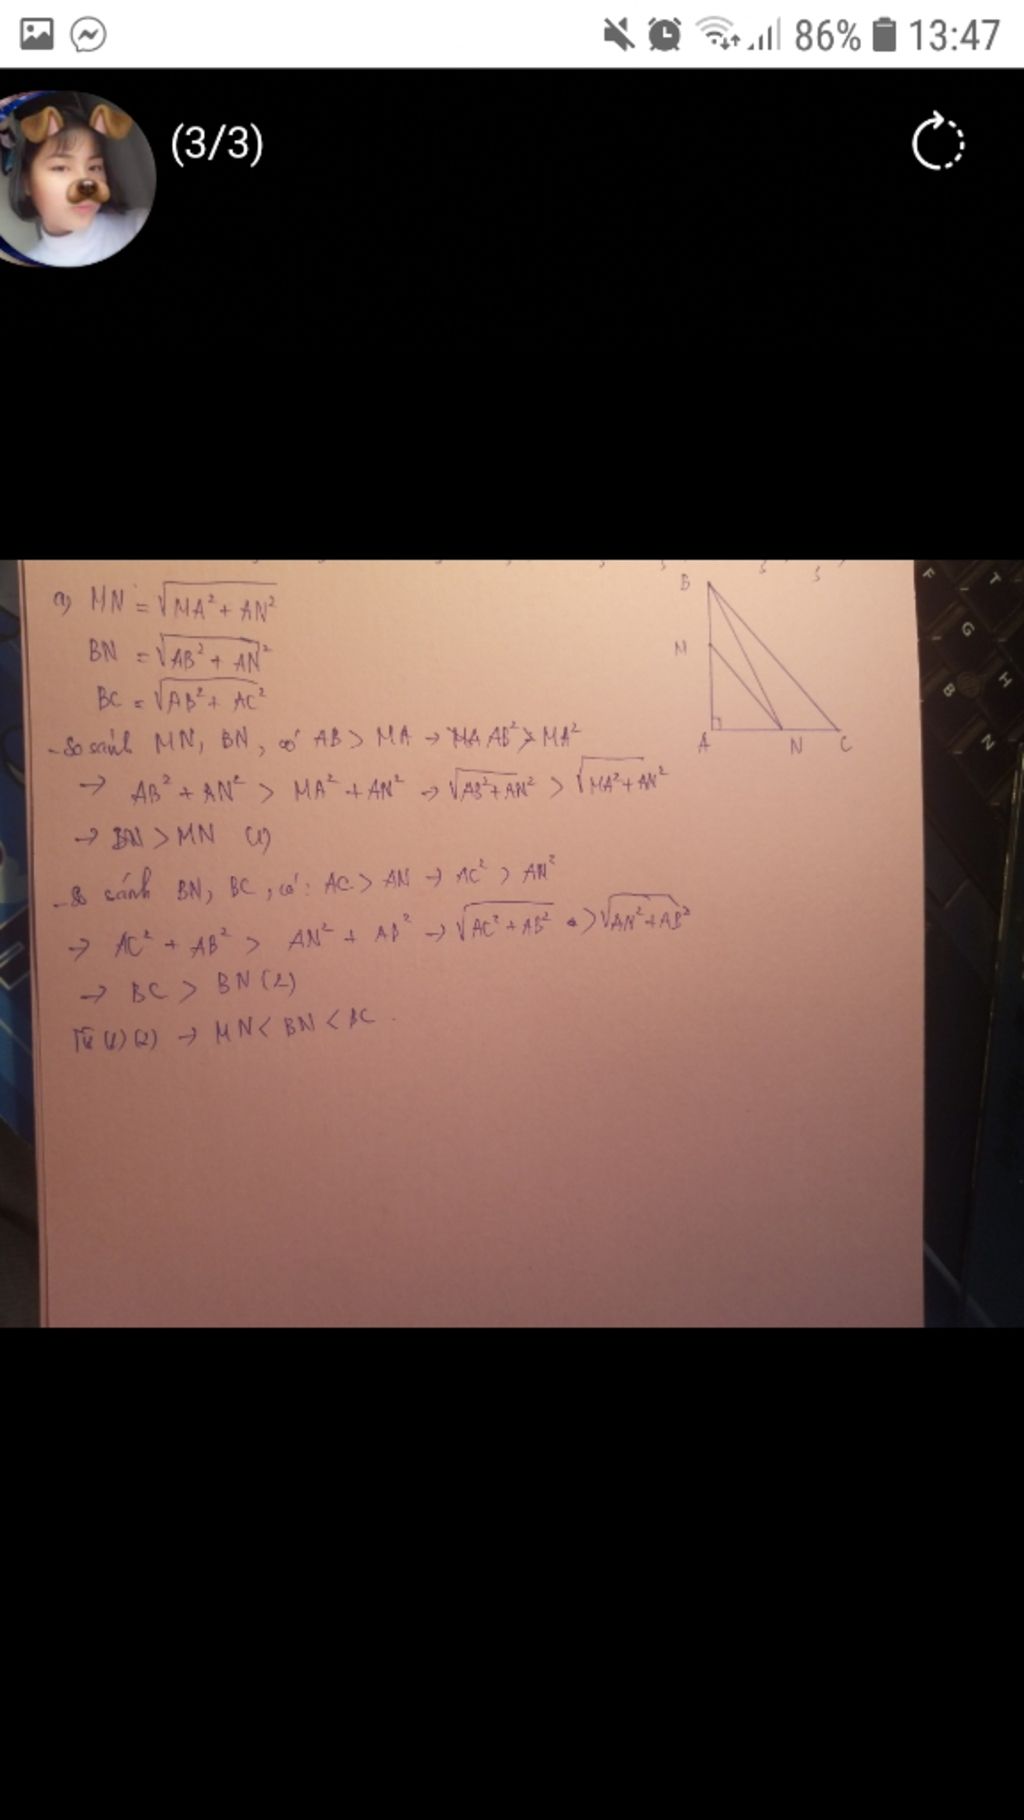 86% 13:47
(3/3)
a) MN = √MA² + AN²
BN = √AB² + AN²
BC = √AB² + AC²
B
M
A N C
- So sánh MN, BN, có AB > MA → AB² > MA²
→ AB² + AN² > MA² + AN² → √AB²+AN² > √MA²+AN²
→ BN > MN (1)
- So sánh BN, BC, có: AC > AN → AC² > AN²
→ AC² + AB² > AN² + AB² → √AC² + AB² > √AN²+AB²
→ BC > BN (2)
Từ (1) (2) → MN < BN < BC.
F T
G
B H
N